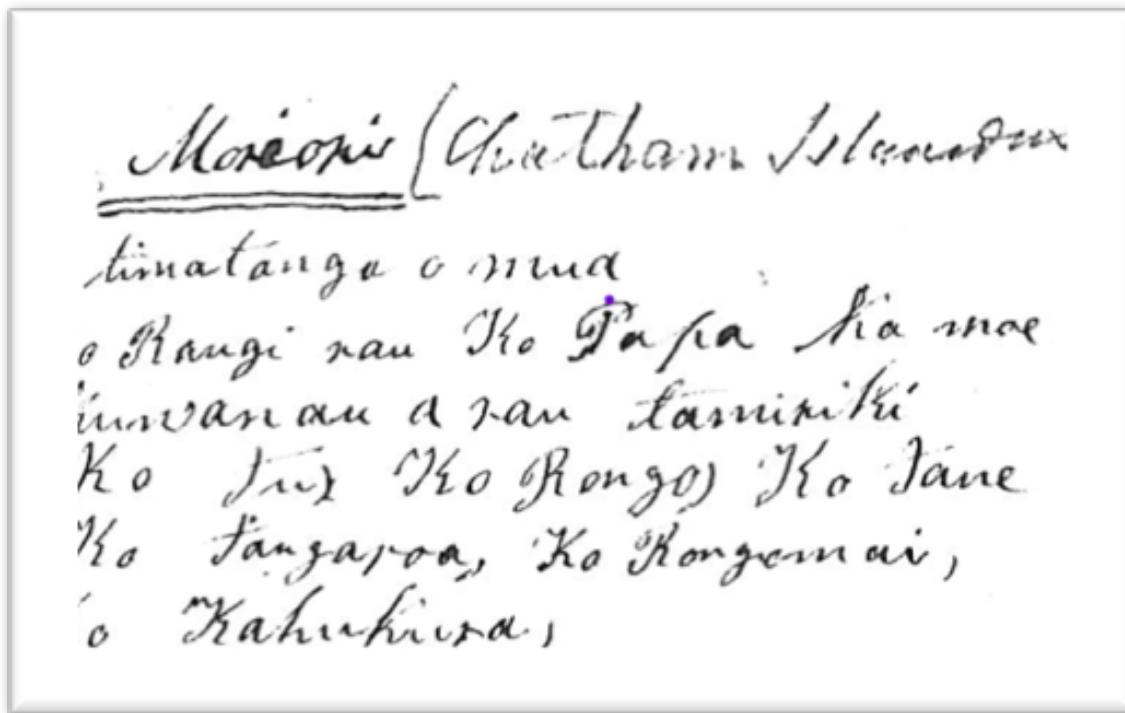 Moriori (Chatham Islands
timatanga o mua
o Rangi rau Ko Papa ka moe
wanau a rau tamiriki
Ko Tu, Ko Rongo, Ko Tane
Ko Tangaroa, Ko Rongomai,
o Kahukura,